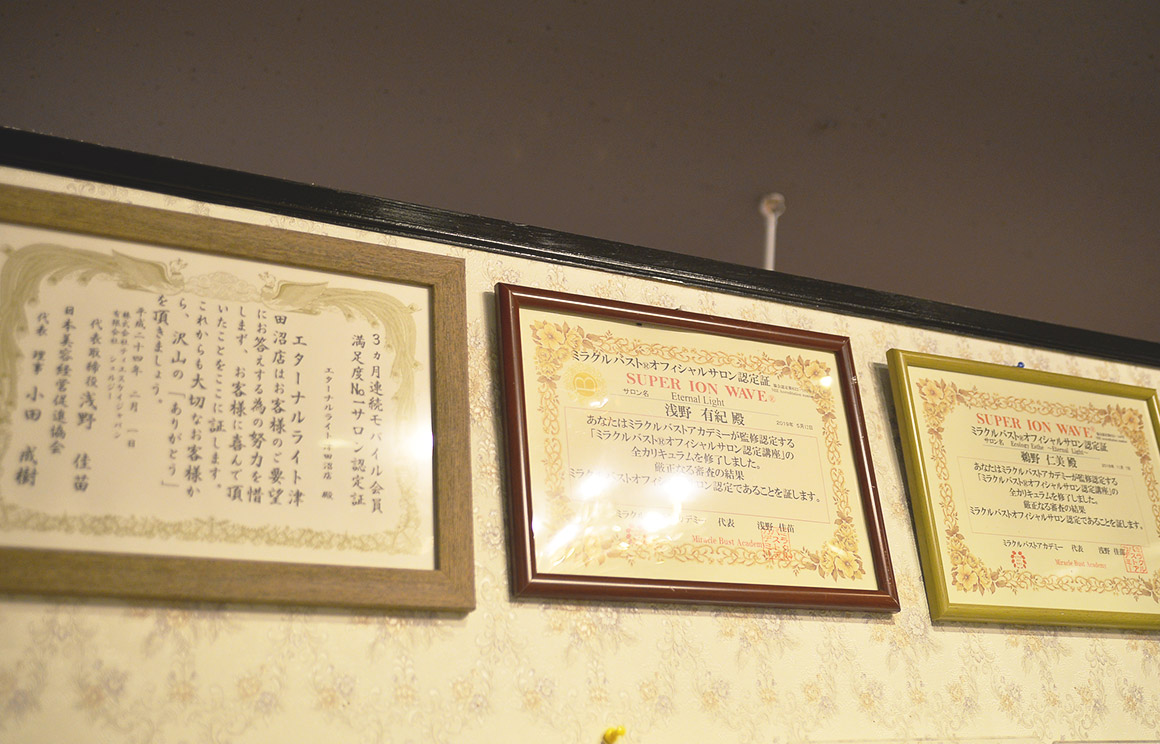 3ヵ月連続モバイル会員
満足度No.1サロン認定証
エターナルライト
田沼店 殿
エターナルライト津
田沼店はお客様のご要望
にお答えする為の努力を惜
しまず、お客様に喜んで頂
いたことをここに証します。
これからも大切なお客様か
ら、沢山の「ありがとう」
を頂きましょう。
平成二十四年 二月一日
株式会社ティエスケイジャパン
有限会社 シェルジー
代表取締役 浅野 佳苗
日本美容経営促進協会
代表 理事 小田 成樹
ミラクルバスト®オフィシャルサロン認定証
SUPER ION WAVE®
サロン名 Eternal Light
浅野 有紀 殿
あなたはミラクルバストアカデミーが監修認定する
「ミラクルバスト®オフィシャルサロン認定講座」の
全カリキュラムを修了しました。
厳正なる審査の結果
バストオフィシャルサロン認定であることを証します。
デミー 代表 浅野 佳苗
Miracle Bust Academy
SUPER ION WAVE®
ミラクルバスト®オフィシャルサロン認定証
サロン名 Ecology Esthe ~Eternal Light~
鵜野 仁美 殿
あなたはミラクルバストアカデミーが監修認定する
「ミラクルバスト®オフィシャルサロン認定講座」の
全カリキュラムを修了しました。
厳正なる審査の結果
ミラクルバストオフィシャルサロン認定であることを証します。
ミラクルバストアカデミー 代表 浅野 佳苗
Miracle Bust Academy